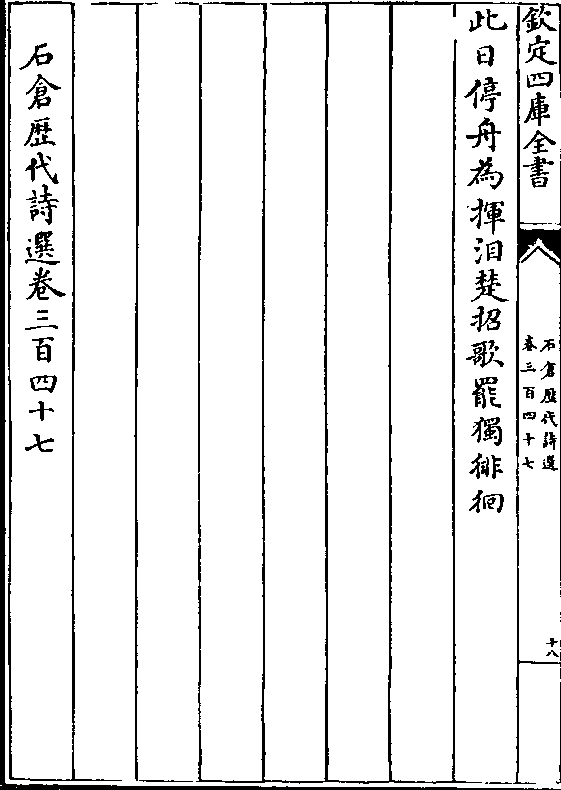 欽定四庫全書
石倉歷代詩選
卷三百四十七
十八
此日停舟為揮泪楚招歌罷獨徘徊
石倉歷代詩選卷三百四十七